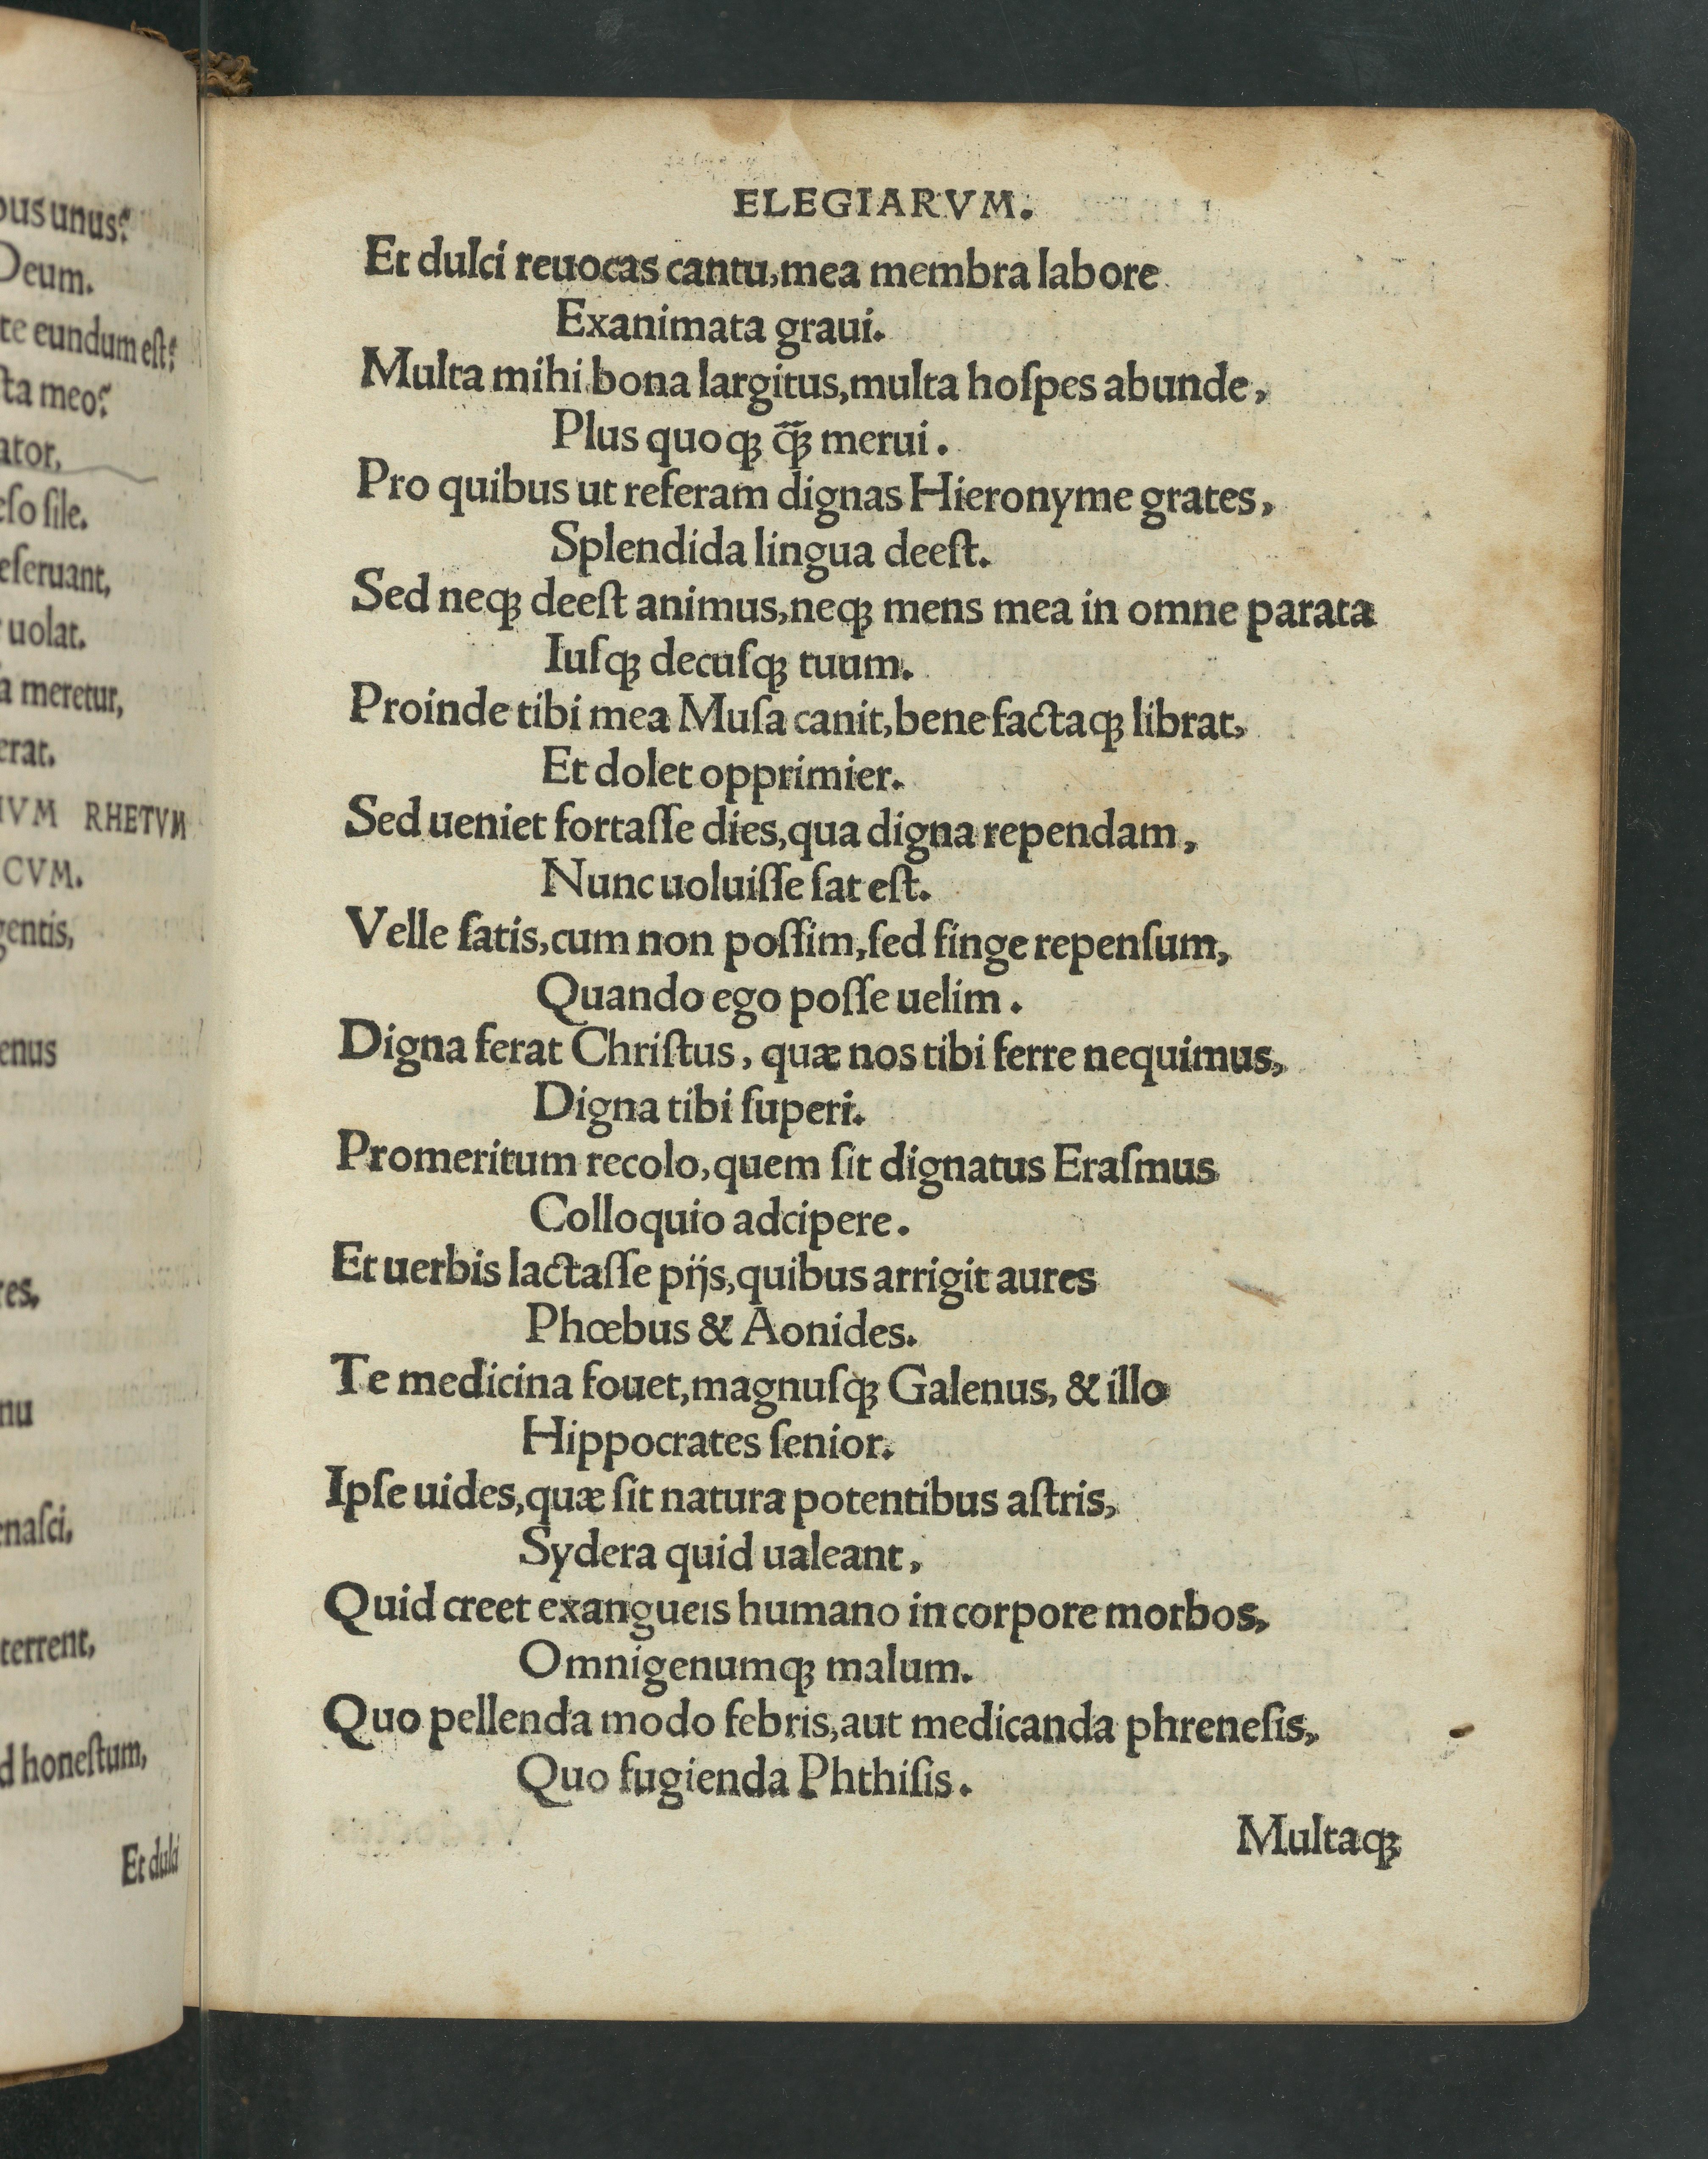 bus unus?
Deum.
te eundum est?
sta meo?
ator,
eſo ſile.
eſeruant,
uolat.
a meretur,
erat.
IVM RHETVM
CVM.
gentis,
enus
res,
nu
enaſci,
terrent,
d honeſtum,
Et dulci
ELEGIARVM.
Et dulci reuocas cantu, mea membra labore
Exanimata graui.
Multa mihi bona largitus, multa hoſpes abunde,
Plus quoqꝫ q̃ꝫ merui.
Pro quibus ut referam dignas Hieronyme grates,
Splendida lingua deeſt.
Sed neqꝫ deeſt animus, neqꝫ mens mea in omne parata
Iuſqꝫ decuſqꝫ tuum.
Proinde tibi mea Muſa canit, bene factaqꝫ librat,
Et dolet opprimier.
Sed ueniet fortaſſe dies, qua digna rependam,
Nunc uoluiſſe ſat eſt.
Velle ſatis, cum non poſſim, ſed finge repenſum,
Quando ego poſſe uelim.
Digna ferat Chriſtus, quæ nos tibi ferre nequimus,
Digna tibi ſuperi.
Promeritum recolo, quem ſit dignatus Eraſmus
Colloquio adcipere.
Et uerbis lactaſſe pijs, quibus arrigit aures
Phœbus & Aonides.
Te medicina fouet, magnuſqꝫ Galenus, & illo
Hippocrates ſenior.
Ipſe uides, quæ ſit natura potentibus aſtris,
Sydera quid ualeant,
Quid creet exangueis humano in corpore morbos,
Omnigenumqꝫ malum.
Quo pellenda modo febris, aut medicanda phreneſis,
Quo fugienda Phthiſis.
Multaqꝫ